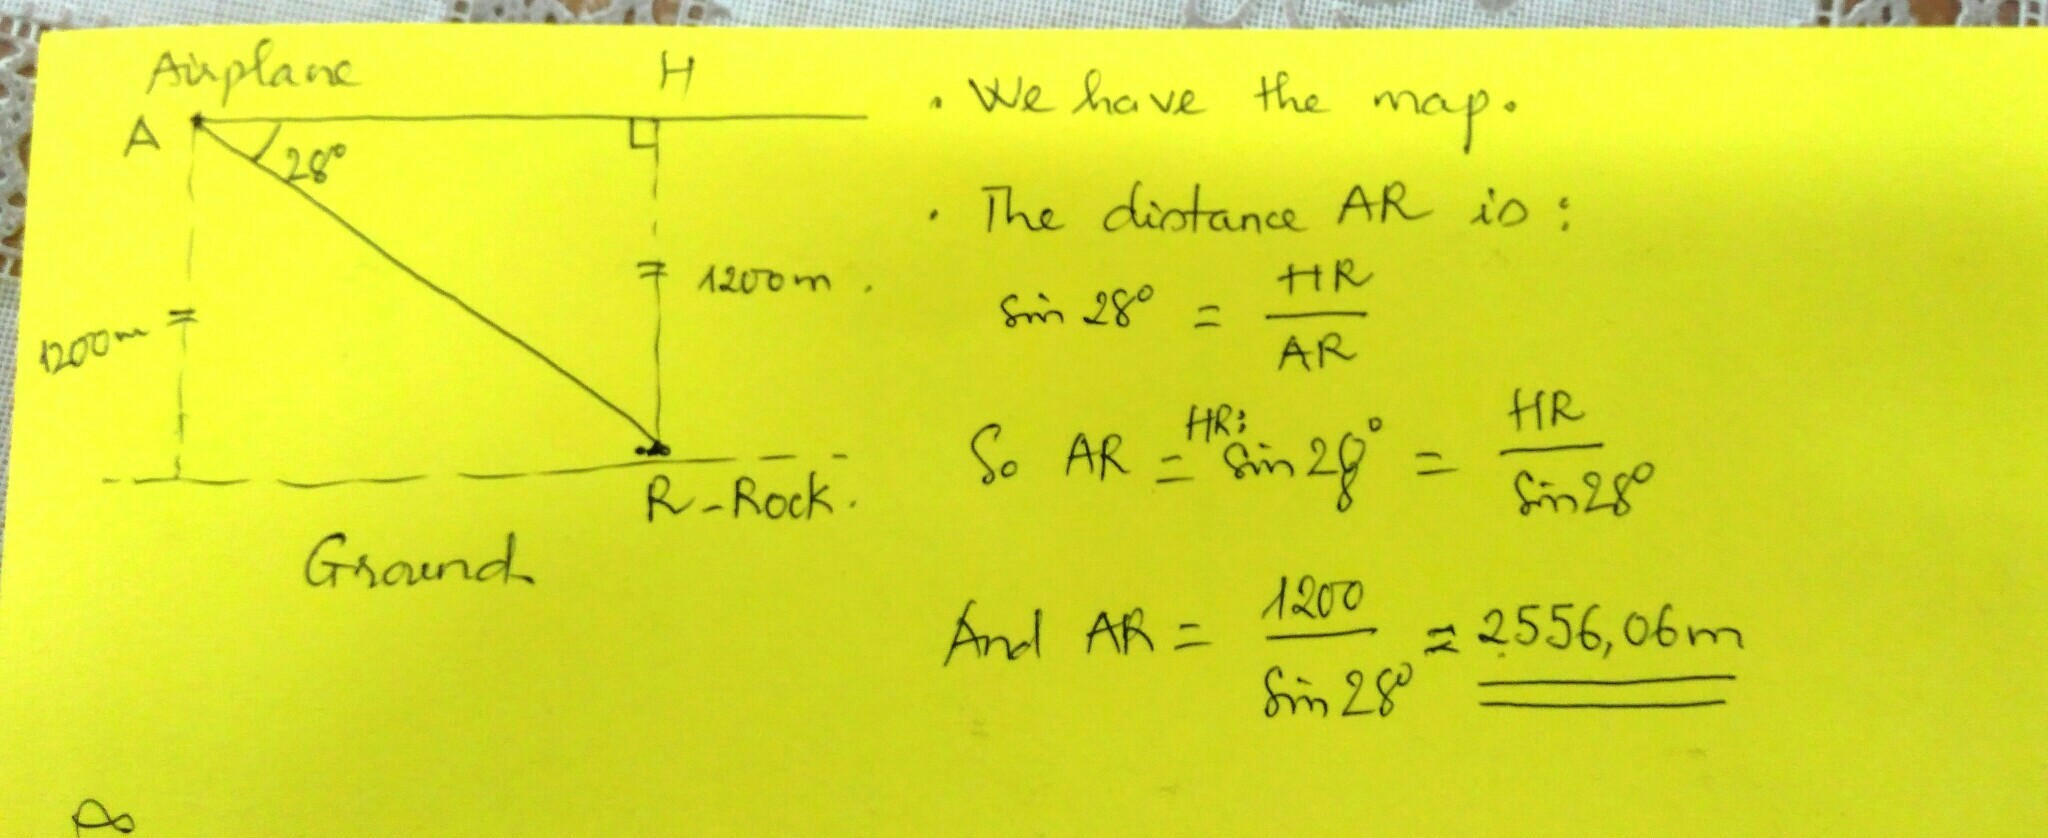 Airplane
H
A
28°
1200m
1200m.
R-Rock.
Ground
. We have the map.
. The distance AR is :
sin 28° = HR / AR
So AR = HR : sin 28° = HR / sin 28°
And AR = 1200 / sin 28° ≈ 2556,06m